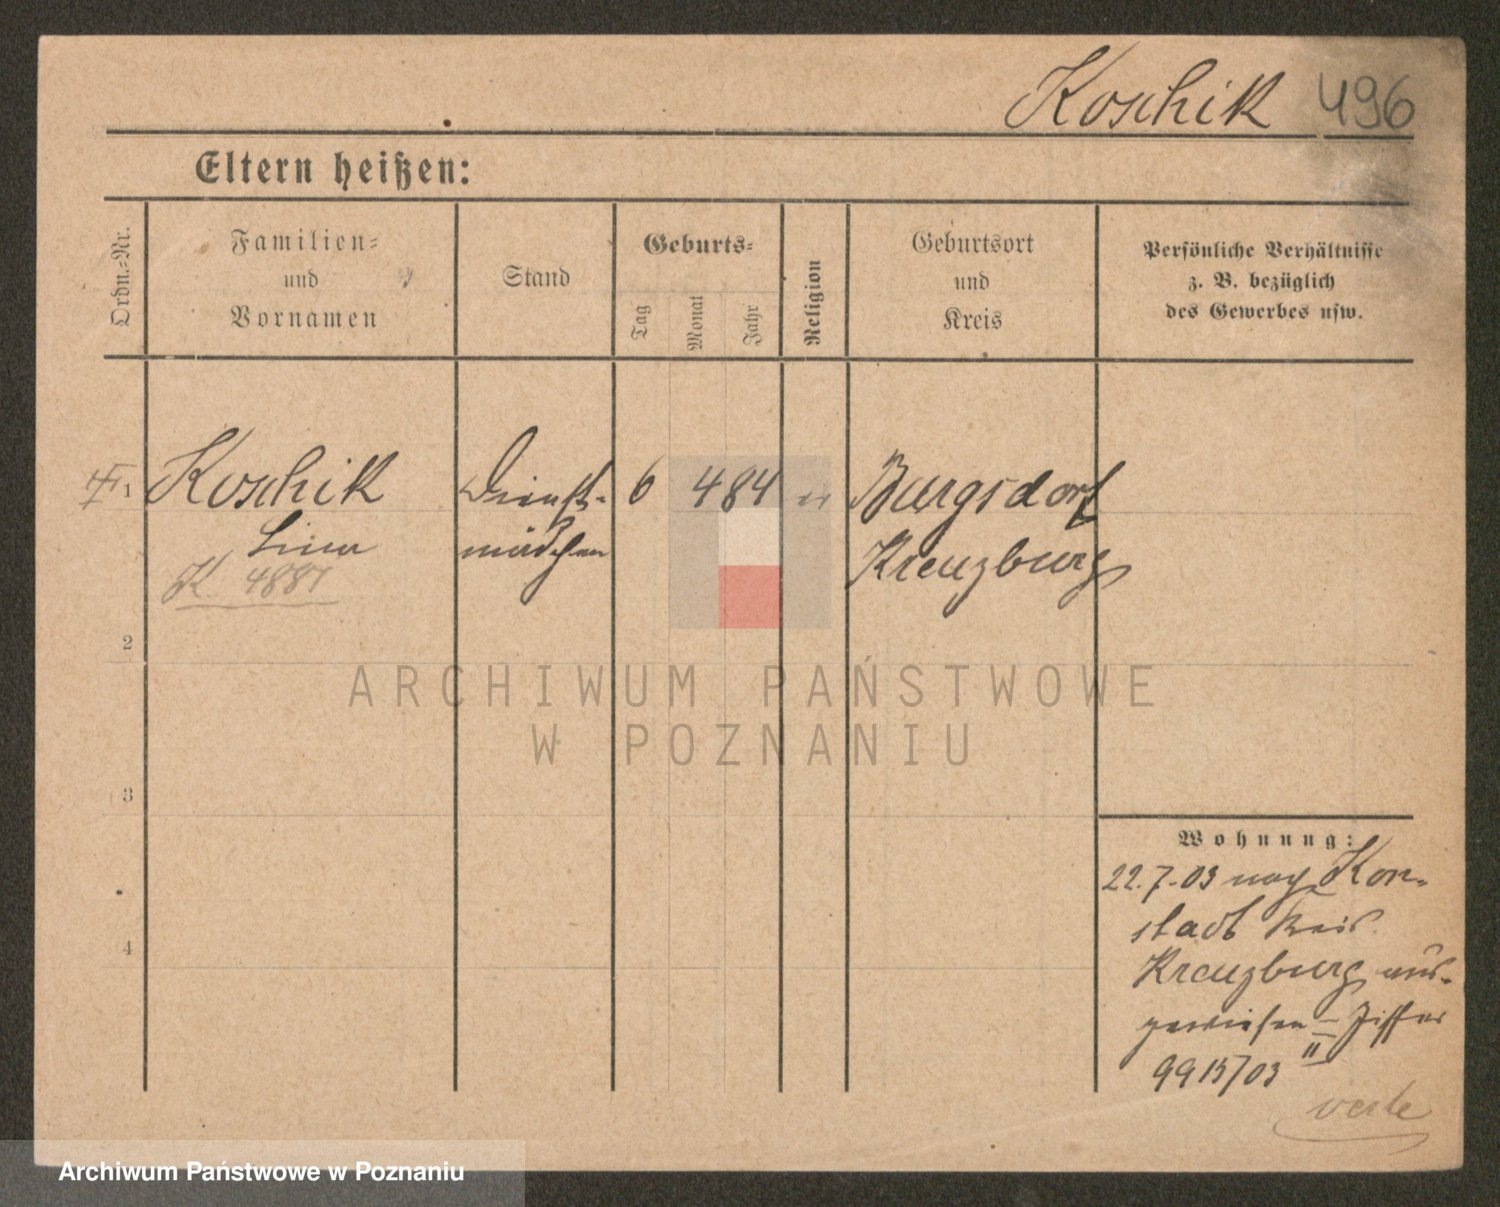 Koschik 496
Eltern heißen:
Ordn.-Nr.
Familien-
und
Vornamen
Stand
Geburts-
Tag
Monat
Jahr
Religion
Geburtsort
und
Kreis
Persönliche Verhältnisse
z. B. bezüglich
des Gewerbes usw.
1 Koschik Dienst- 6 4 84 Burgsdorf
mädchen Kreuzburg
K 4887
2
3
4
Wohnung:
22.7.03 nach Kon-
stadt Kreis
Kreuzburg aus-
gewiesen Ziffer
9915/03
verte
ARCHIWUM PAŃSTWOWE
W POZNANIU
Archiwum Państwowe w Poznaniu